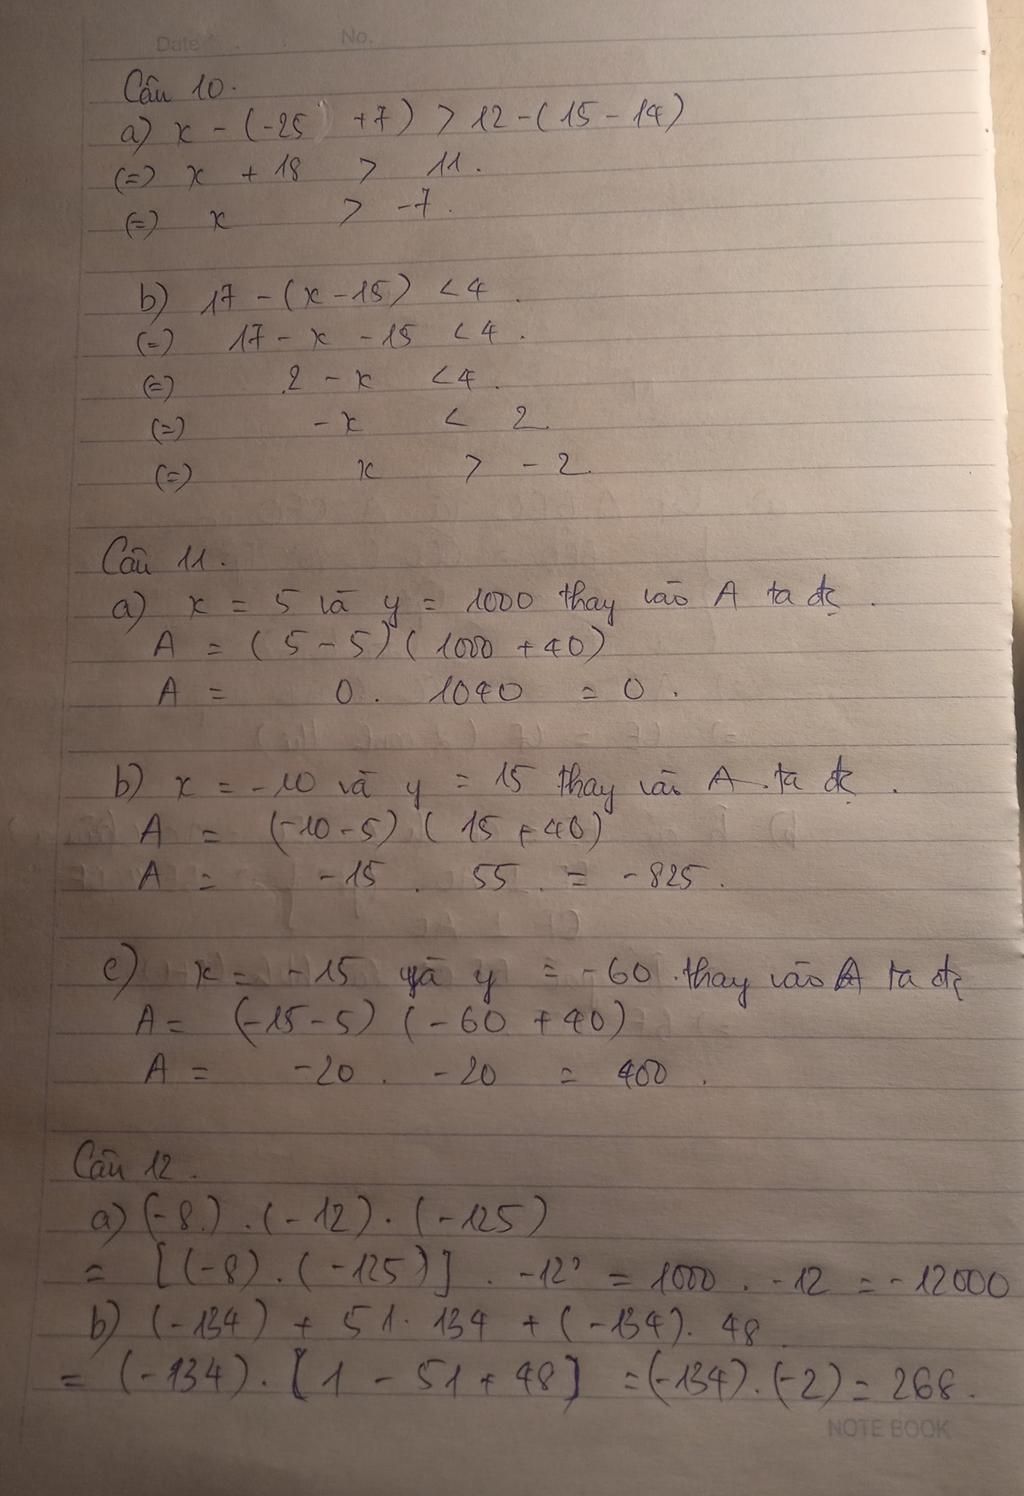 Date No.
Câu 10.
a) x - (-25 + 7) > 12 - (15 - 14)
(=) x + 18 > 11.
(=) x > -7.
b) 17 - (x - 15) < 4.
(=) 17 - x - 15 < 4.
(=) 2 - x < 4.
(=) -x < 2
(=) x > -2.
Câu 11.
a) x = 5 và y = 1000 thay vào A ta đc.
A = (5 - 5) (1000 + 40)
A = 0 . 1040 = 0.
b) x = -10 và y = 15 thay vào A ta đc.
A = (-10 - 5) (15 + 40)
A = -15 . 55 = -825.
c) x = -15 và y = -60 thay vào A ta đc
A = (-15 - 5) (-60 + 40)
A = -20 . -20 = 400.
Câu 12.
a) (-8) . (-12) . (-125)
= [(-8) . (-125)] . -12 = 1000 . -12 = -12000
b) (-134) + 51 . 134 + (-134) . 48
= (-134) . [1 - 51 + 48] = (-134) . (-2) = 268.
NOTE BOOK